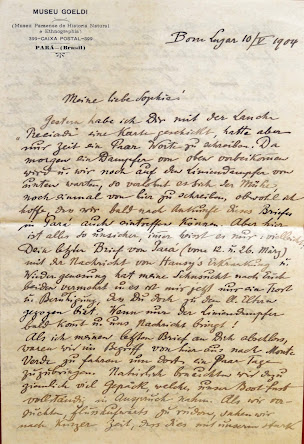 MUSEU GOELDI
(Museu Paraense de Historia Natural
e Ethnographia)
CAIXA POSTAL
PARÁ—(Brasil)
Bom Lugar 10/V 1904
Meine liebe Sophie!
Gestern habe ich Dir mit der Lancha
eine Karte geschickt, hatte aber
nur Zeit ein Paar Worte zu schreiben. Da
morgen ein Dampfer von oben vorbeikommen
wird u. wir noch auf den Liniendampfer von
unten warten, so es sich der Mühe
noch einmal von hier zu schreiben, obwohl ich
hoffe, dass wir bald nach Ankunft dieses Briefes
in Pará auch eintreffen können. Aber hier
ist alles so
Dein letzter Brief von Pará (vom 12. u. 26. März)
mit der Nachricht von Hansy's Erkrankung u.
Wiedergenesung hat meine Sehnsucht nach Euch
beiden vermehrt u. es ist mir jetzt nur ein Trost
u. Beruhigung, dass Du doch zu den
gezogen bist. Wenn nur der Liniendampfer
bald kommt u. uns Nachricht bringt!
Als ich meinen letzten Brief an Dich abschloss,
waren wir im Begriff von hier aus nach Monte
Verde zu fahren, um dort ein paar Tage
zuzubringen. Natürlich brauchten wir dazu
ziemlich viel Gepäck, welches unser Boot fast
vollständig in Anspruch nahm. Als wir
flussaufwärts zu rudern, sahen wir
nach kurzer Zeit, dass dies mit unserm